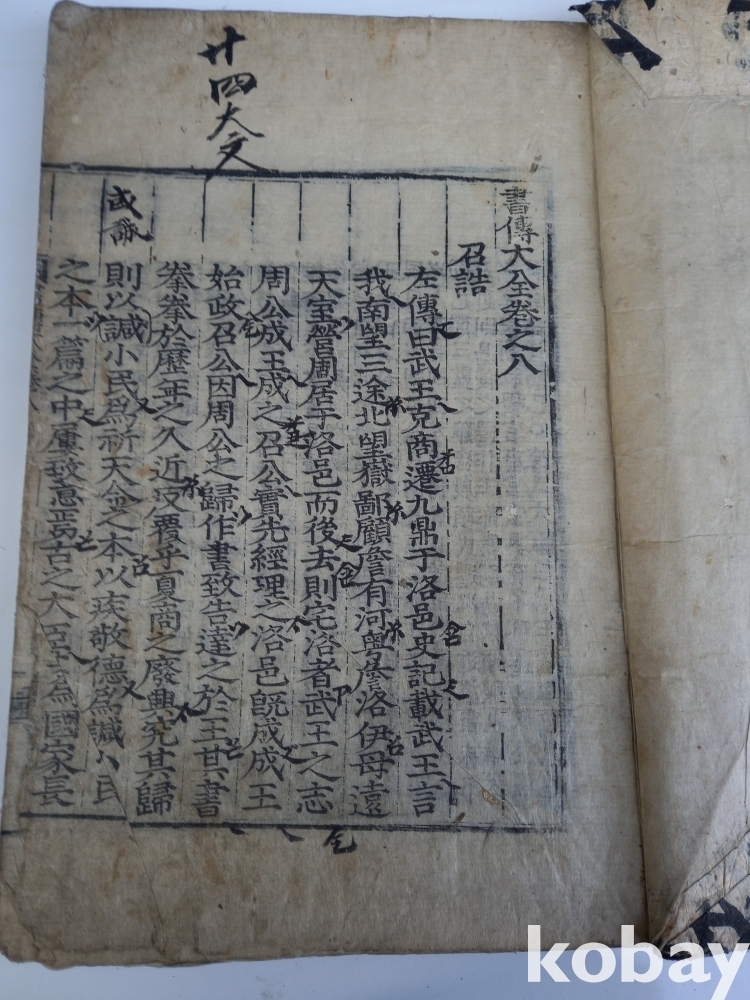 廿四大文
書傳大全卷之八
召誥
左傳曰武王克商遷九鼎于洛邑史記載武王言
我南望三途北望嶽鄙顧詹有河粤詹洛伊毋遠
天室營周居于洛邑而後去則宅洛者武王之志
周公成王成之召公實先經理之洛邑旣成成王
始政召公因周公之歸作書致告達之於王其書
拳拳於歷年之久近反覆乎夏商之廢興究其歸
則以諴小民爲祈天命之本以疾敬德爲諴小民
之本一篇之中屢致意焉古之大臣其爲國家長
kobay